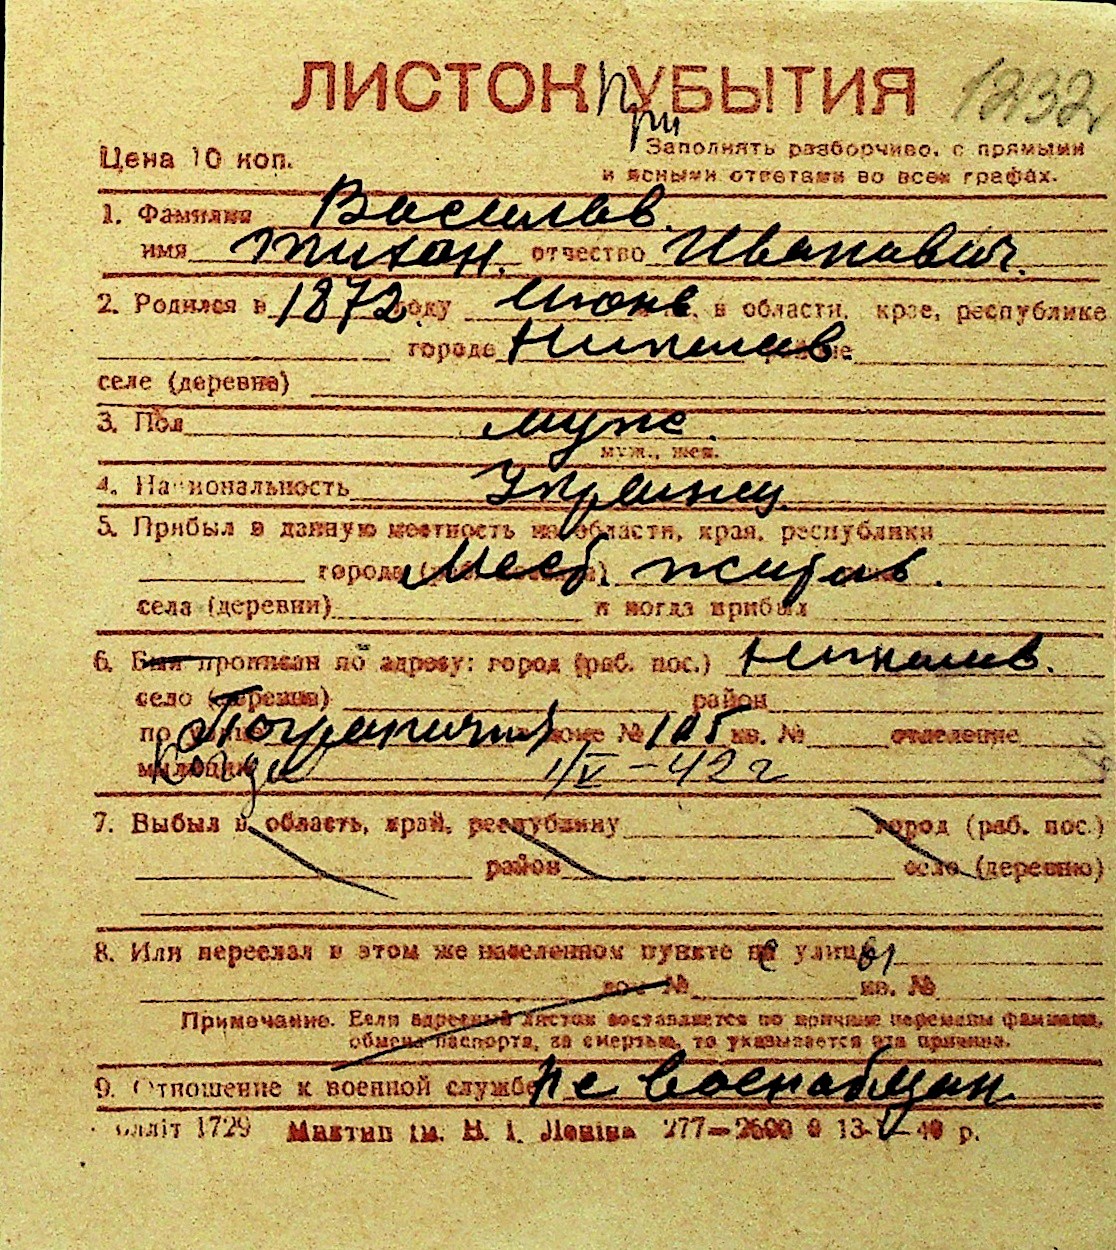 ЛИСТОК УБЫТИЯ 1232
при
Цена 10 коп.
Заполнять разборчиво, с прямыми
и ясными ответами во всех графах.
1. Фамилия Васильев.
имя Тихон. отчество Иванович.
2. Родился в 1872 году июнь в области, крае, республике
городе Николаев
селе (деревне)
3. Пол муж.
муж., жен.
4. Национальность Украинец
5. Прибыл в данную местность из области, края, республики
города Мест. житель.
села (деревни) и когда прибыл
6. Был прописан по адресу: город (раб. пос.) Николаев.
село (деревня) район
по улице Пограничная доме № 105 кв. № отделение
милиции Когда 1/V-42 г
7. Выбыл в область, край, республику город (раб. пос.)
район село (деревню)
8. Или переехал в этом же населенном пункте с улицы
кв. №
Примечание. Если адресный листок составляется по причине перемены фамилии,
обмена паспорта, за смертью, то указывается эта причина.
9. Отношение к военной службе не военнобязан
1729 Миктип ім. В. І. Леніна 277—2600 0 13-V—40 р.